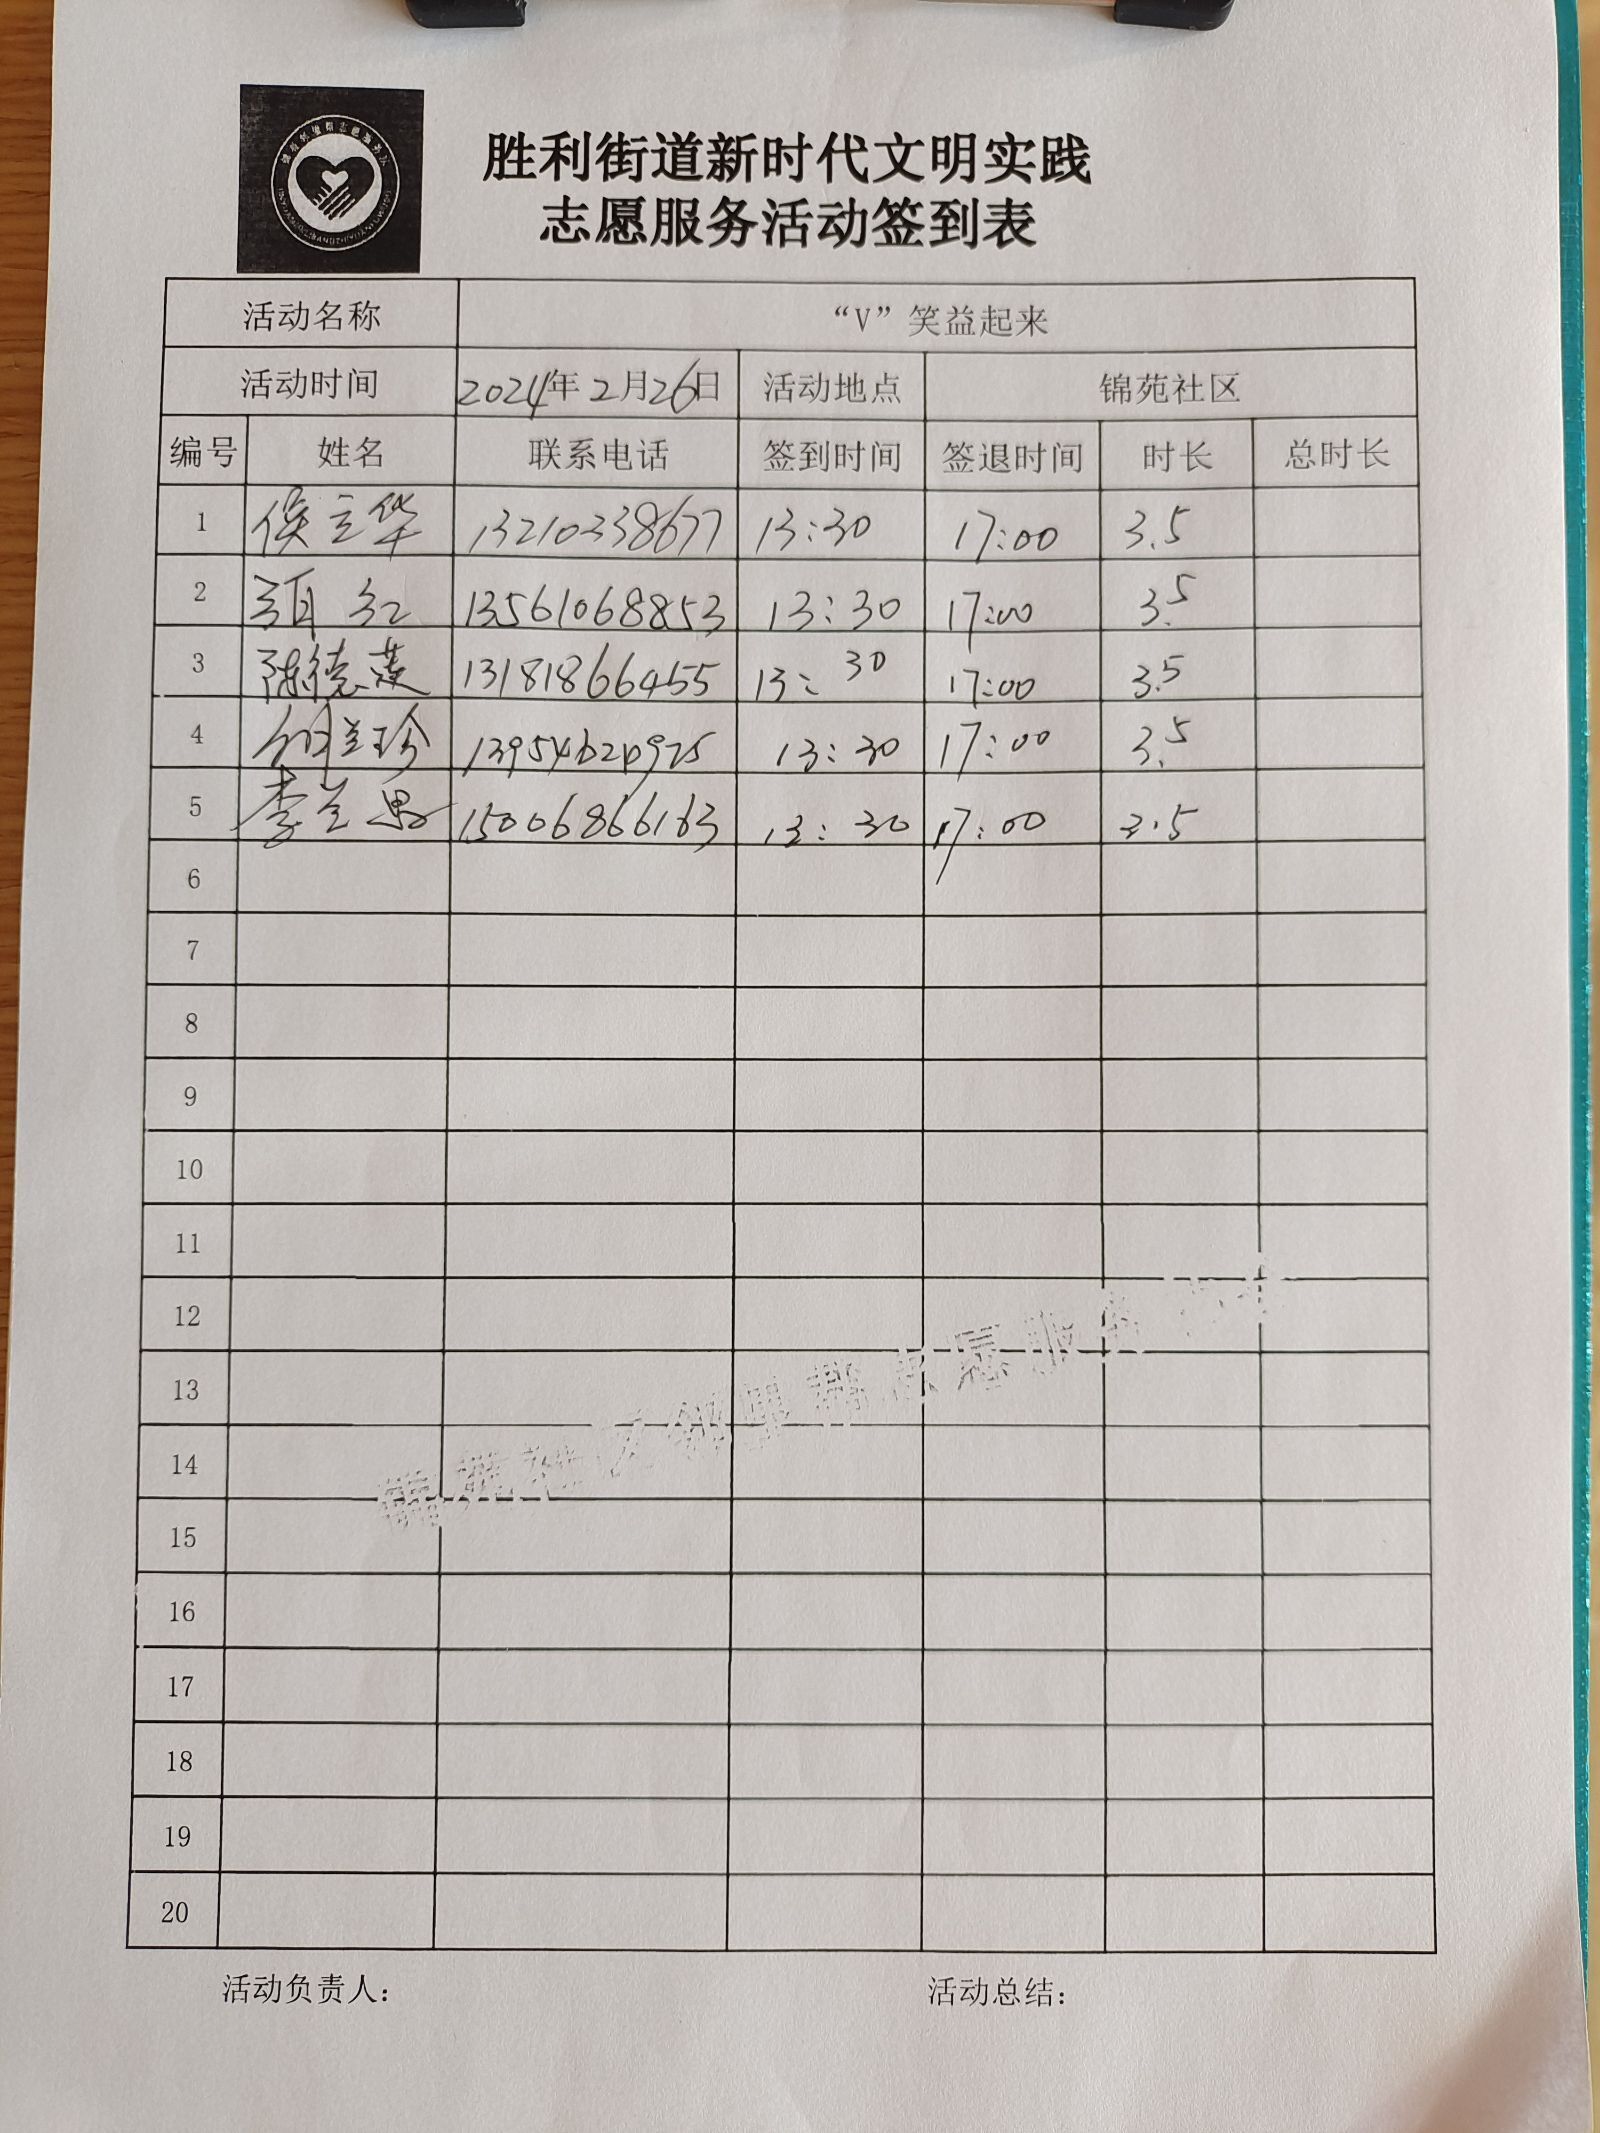 胜利街道新时代文明实践
志愿服务活动签到表
活动名称 “V”笑益起来
活动时间 2024年2月26日 活动地点 锦苑社区
编号 姓名 联系电话 签到时间 签退时间 时长 总时长
1 侯立华 13210338677 13:30 17:00 3.5
2 红 13561068853 13:30 17:00 3.5
3 陈德 13181866455 13:30 17:00 3.5
4 兰珍 13:30 17:00 3.5
5 李兰 15006866163 13:30 17:00 3.5
6
7
8
9
10
11
12
13
14
15
16
17
18
19
20
活动负责人: 活动总结: